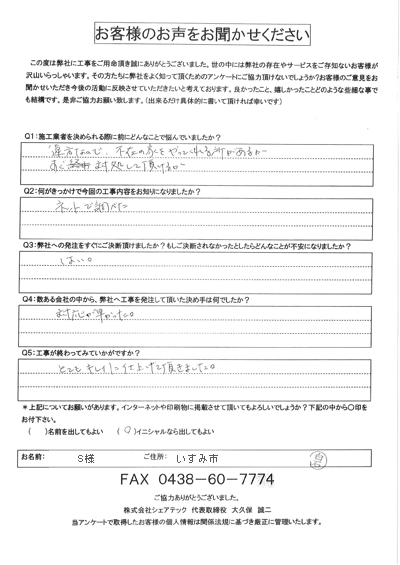 お客様のお声をお聞かせください
この度は弊社に工事をご用命頂き誠にありがとうございました。世の中には弊社の存在やサービスをご存知ないお客様が
沢山いらっしゃいます。その方たちに弊社をよく知って頂くためのアンケートにご協力頂けないでしょうか?お客様のご意見をお
聞かせいただき今後の活動に反映させていただきたいと考えております。良かったこと、嬉しかったことどのような些細な事で
も結構です。是非ご協力お願い致します。(出来るだけ具体的に書いて頂ければ幸いです)
Q1:施工業者を決められる際に前にどんなことで悩んでいましたか?
遠方なので、不在の家をやってくれる所があるか
すぐ対処して頂けるか
Q2:何がきっかけで今回の工事内容をお知りになりましたか?
ネットで調べた
Q3:弊社への発注をすぐにご決断頂けましたか?もしご決断されなかったとしたらどんなことが不安になりましたか?
はい。
Q4:数ある会社の中から、弊社へ工事を発注して頂いた決め手は何でしたか?
対応が早かった。
Q5:工事が終わってみていかがですか?
とてもキレイに仕上げて頂きました。
*上記についてお願いがあります。インターネットや印刷物に掲載させて頂いてもよろしいでしょうか?下記の中から〇印を
お付下さい。
( )名前を出してもよい (○)イニシャルなら出してもよい
お名前: S様 ご住所: いすみ市
FAX 0438-60-7774
ご協力ありがとうございました。
株式会社シェアテック 代表取締役 大久保 誠二
当アンケートで取得したお客様の個人情報は関係法規に基づき厳正に管理いたします。